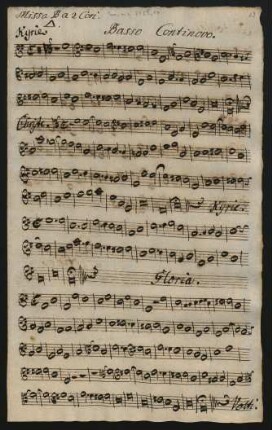 Missa Δ a 2 Cori.
Kyrie Basso Continovo.
Christe.
Kyrie.
Gloria.
Volti